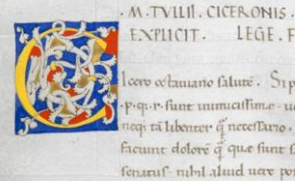 · M · TVLII · CICERONIS ·
EXPLICIT · LEGE · F
C
Icero octauiano salutē · Si p
· p · q · r · sunt inimicissimę · u
neqȝ tā libenter q̄ necessario ·
faciunt dolorē q̄ quę sunt s
senatus · nihil aliud uere po